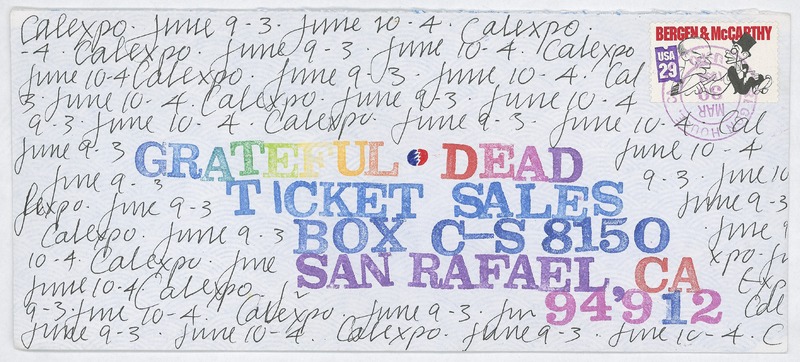 Calexpo. June 9-3. June 10-4. Calexpo.
-4. Calexpo. June 9-3. June 10-4. Calexpo
June 10-4 Calexpo. June 9-3. June 10-4. Cal
3. June 10-4. Calexpo. June 9-3. June 10-4.
9-3. June 10-4. Calexpo. June 9-3. June 10-4. Cal
June 9-3 June 10-4
June 9-3 9-3. June 10
lexpo. June 9-3 June 9-3
Calexpo. June 9-3 June 9
10-4. Calexpo. June xpo. Ju
June 10-4 Calexpo Exp
9-3. June 10-4. Calexpo. June 9-3. Jun Cal
June 9-3. June 10-4. Calexpo. June 9-3. June 10-4. C
BERGEN & McCARTHY
USA
29
MAR
30
GRATEFUL DEAD
TICKET SALES
BOX C-S 8150
SAN RAFAEL, CA
94912